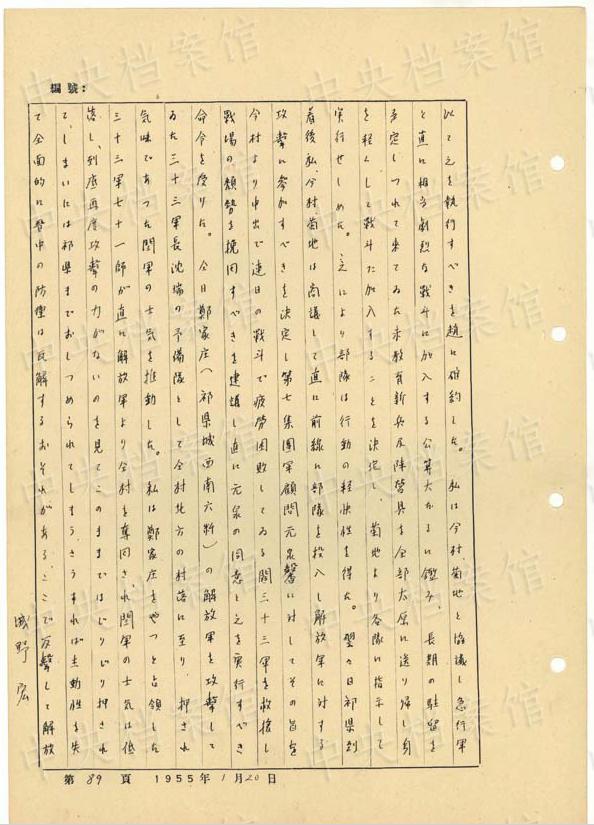 編號：
以て之を執行すべきを趙に確約した。私は今村、菊地と協議し急行軍
と直に相当劇烈な戦斗に加入する公算大なるに鑑み、長期の駐留を
予定しつれて来てゐた未教育新兵及陣営具を全部太原に送り帰し身
を軽くして戦斗に加入することを決定し、菊地より各隊に指示して
実行せしめた。之により部隊は行動の軽快性を得た。翌々日祁県到
着後私、今村菊地は商議して直に前線に部隊を投入し解放軍に対する
攻撃に参加すべきを決定し第七集団軍顧問元泉馨に対してその旨を
今村より申出で連日の戦斗で疲労困敗してゐる閻三十三軍を救援し
戦場の頽勢を挽回すべきを建議し直に元泉の同意と之を実行すべき
命令を受けた。今日鄭家庄（祁県城西南六粁）の解放軍を攻撃して
ゐた三十三軍長沈瑞の予備隊として今村北方の村落に至り、押され
気味であつた閻軍の士気を推動した。私は鄭家庄をやつと占領した
三十三軍七十一師が直に解放軍より今村を奪回され閻軍の士気は低
落し、到底再度攻撃の力がないのを見てこのまゝではじりじり押され
て、しまいには祁県までおしつめられてしまう、さうすれば主動性を失
て全面的に晋中の防衛は瓦解するおそれがある、ここで反撃して解放
城野宏
第89頁 1955年1月20日
中央档案馆